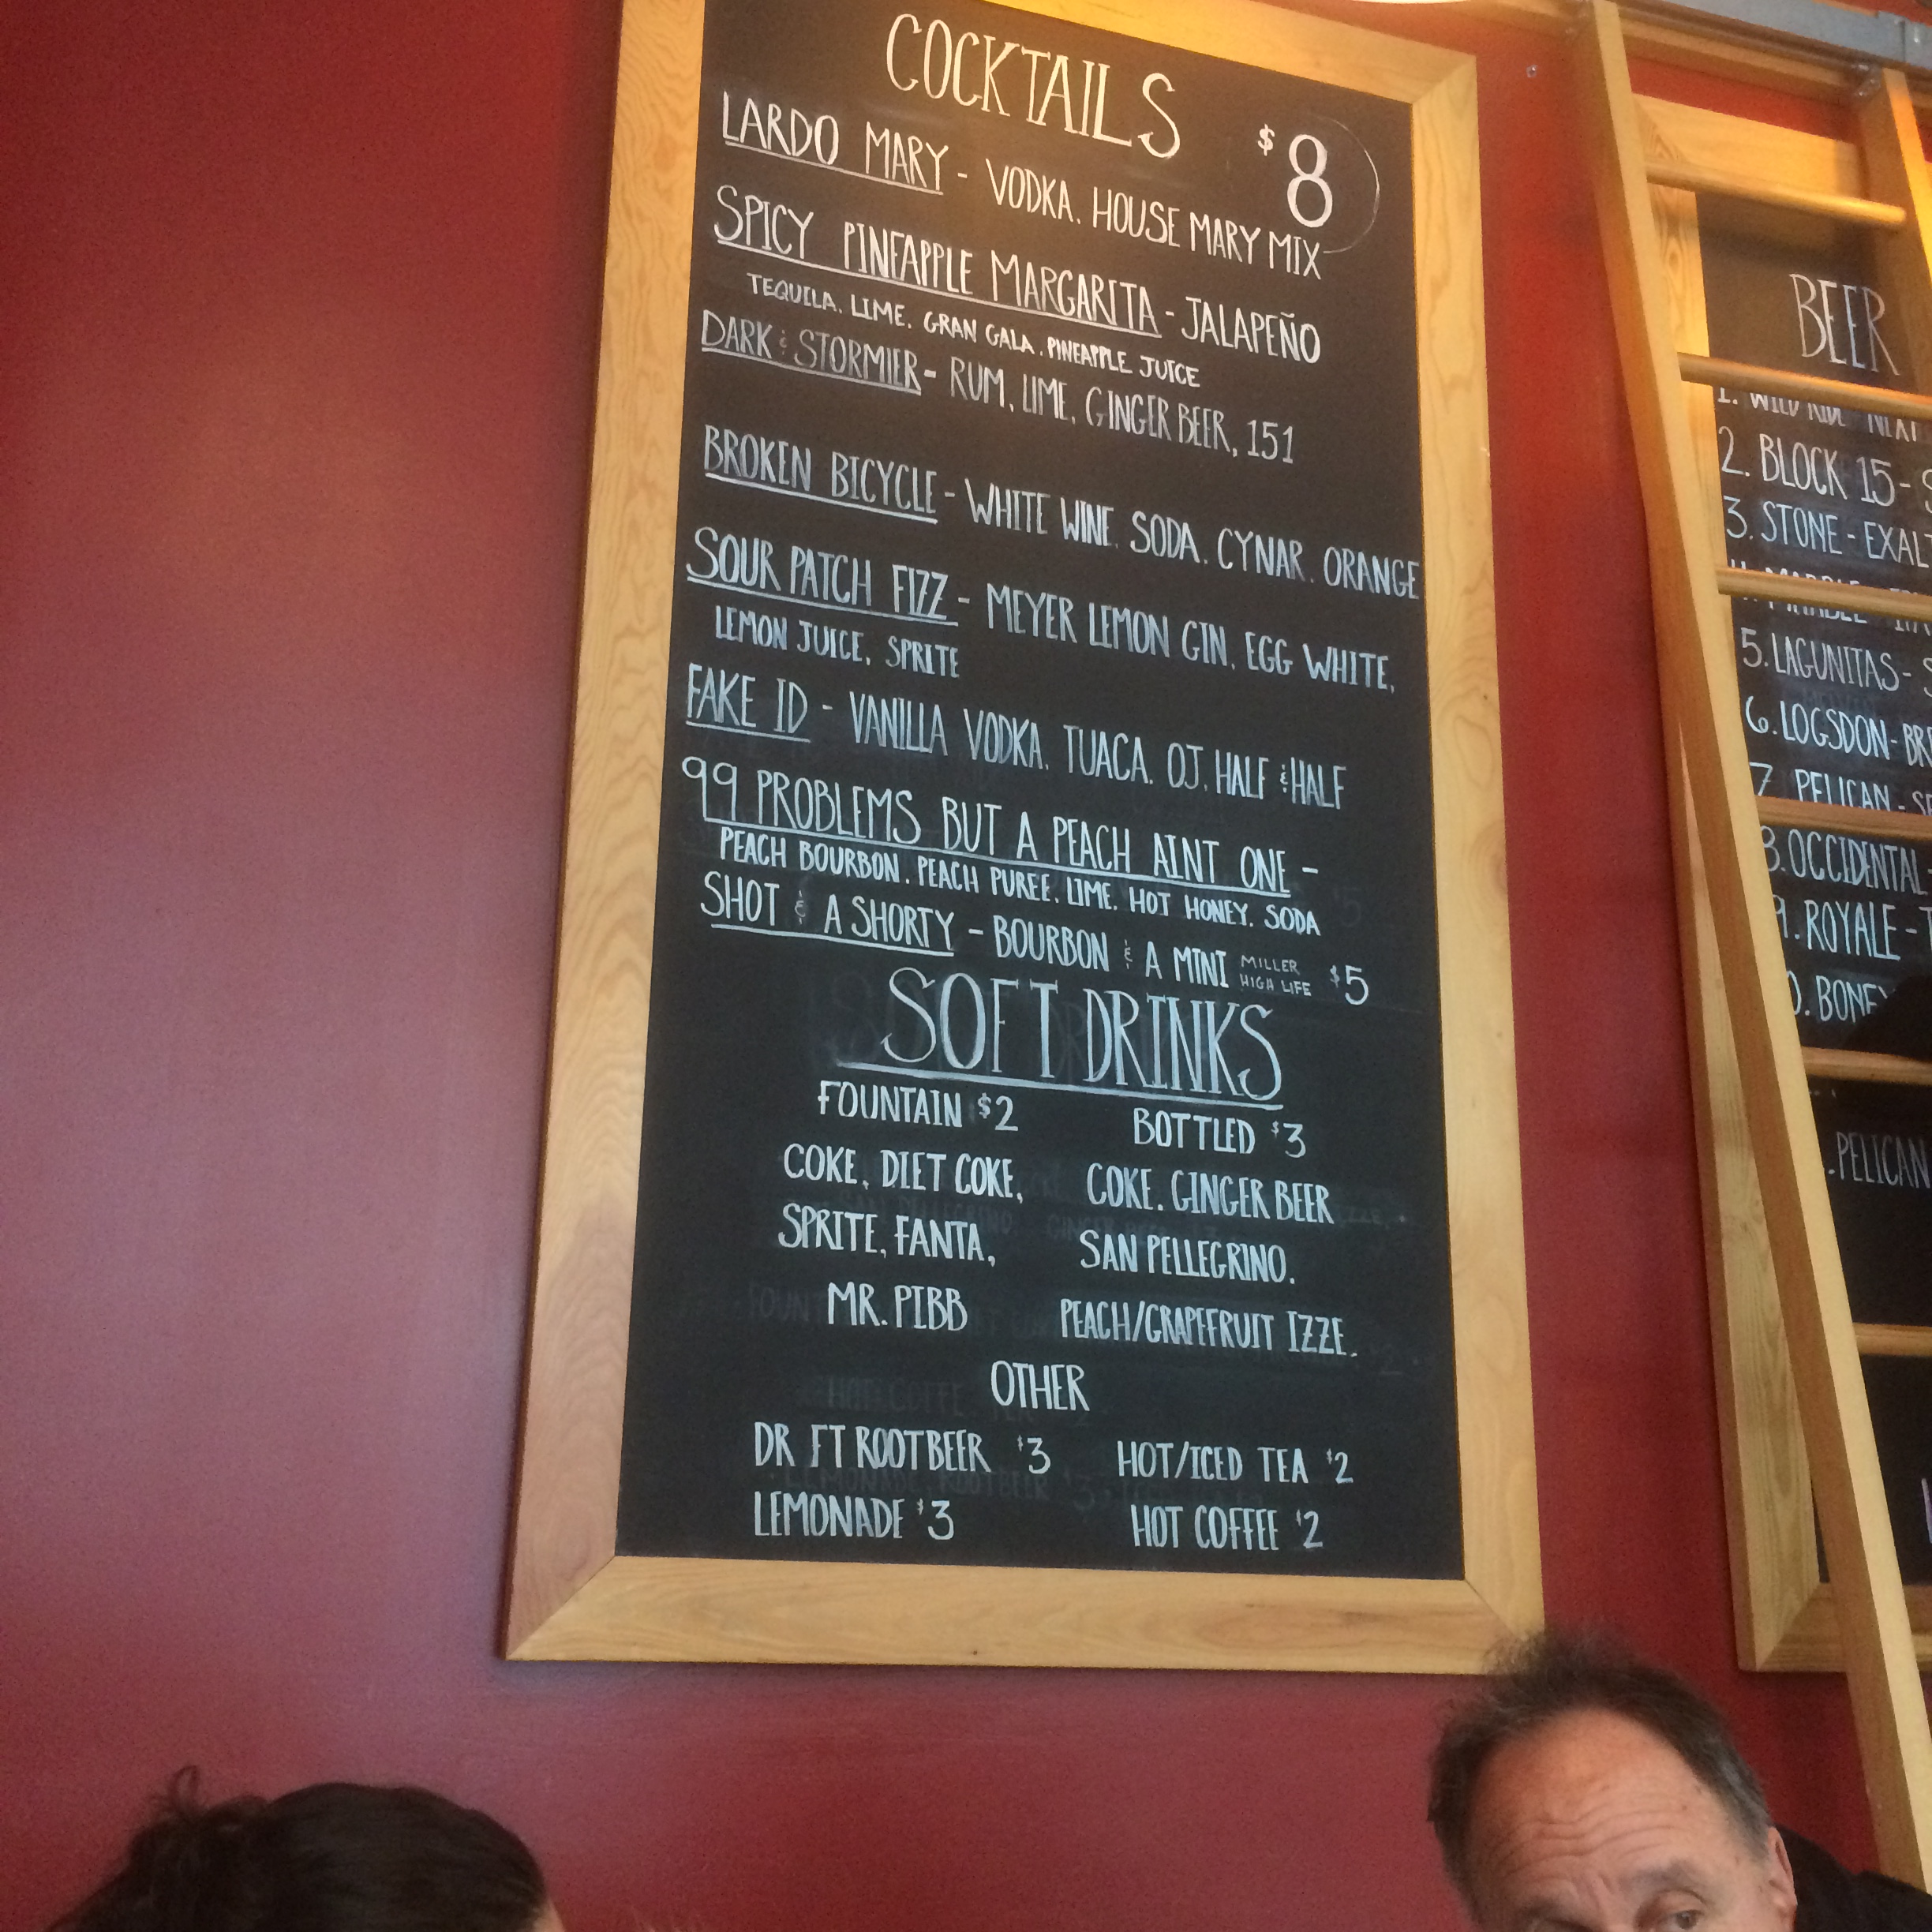 COCKTAILS $8
LARDO MARY - VODKA, HOUSE MARY MIX
SPICY PINEAPPLE MARGARITA - JALAPEÑO
TEQUILA, LIME, GRAN GALA, PINEAPPLE JUICE
DARK & STORMIER - RUM, LIME, GINGER BEER, 151
BROKEN BICYCLE - WHITE WINE, SODA, CYNAR, ORANGE
SOUR PATCH FIZZ - MEYER LEMON GIN, EGG WHITE,
LEMON JUICE, SPRITE
FAKE ID - VANILLA VODKA, TUACA, OJ, HALF & HALF
99 PROBLEMS BUT A PEACH AINT ONE -
PEACH BOURBON, PEACH PUREE, LIME, HOT HONEY, SODA
SHOT & A SHORTY - BOURBON & A MINI MILLER HIGH LIFE $5
SOFT DRINKS
FOUNTAIN $2
COKE, DIET COKE,
SPRITE, FANTA,
MR. PIBB
BOTTLED $3
COKE, GINGER BEER
SAN PELLEGRINO.
PEACH/GRAPEFRUIT IZZE.
OTHER
DR FT ROOTBEER $3
LEMONADE $3
HOT/ICED TEA $2
HOT COFFEE $2
BEER
1. WILD RIDE
2. BLOCK 15 -
3. STONE -
5. LAGUNITAS -
6. LOGSDON -
7 PELICAN -
8. OCCIDENTAL -
9. ROYALE -
PELICAN